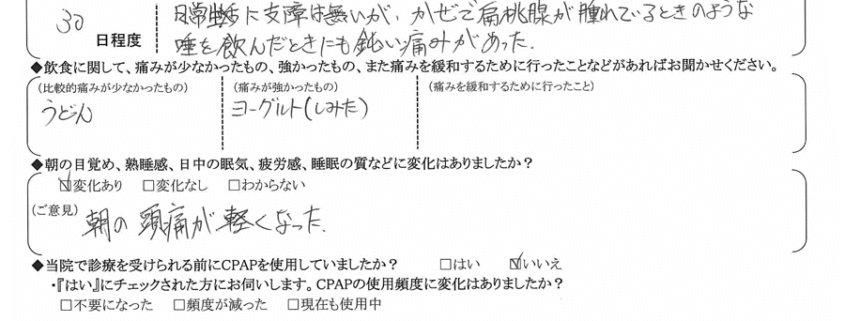 30
日程度
日常生活に支障は無いが、かぜで扁桃腺が腫れているときのような
唾を飲んだときにも鈍い痛みがあった.
◆飲食に関して、痛みが少なかったもの、強かったもの、また痛みを緩和するために行ったことなどがあればお聞かせください。
(比較的痛みが少なかったもの) (痛みが強かったもの) (痛みを緩和するために行ったこと)
うどん ヨーグルト(しみた)
◆朝の目覚め、熟睡感、日中の眠気、疲労感、睡眠の質などに変化はありましたか?
☑変化あり □変化なし □わからない
(ご意見) 朝の頭痛が軽くなった.
◆当院で診療を受けられる前にCPAPを使用していましたか? □はい ☑いいえ
・『はい』にチェックされた方にお伺いします。CPAPの使用頻度に変化はありましたか?
□不要になった □頻度が減った □現在も使用中